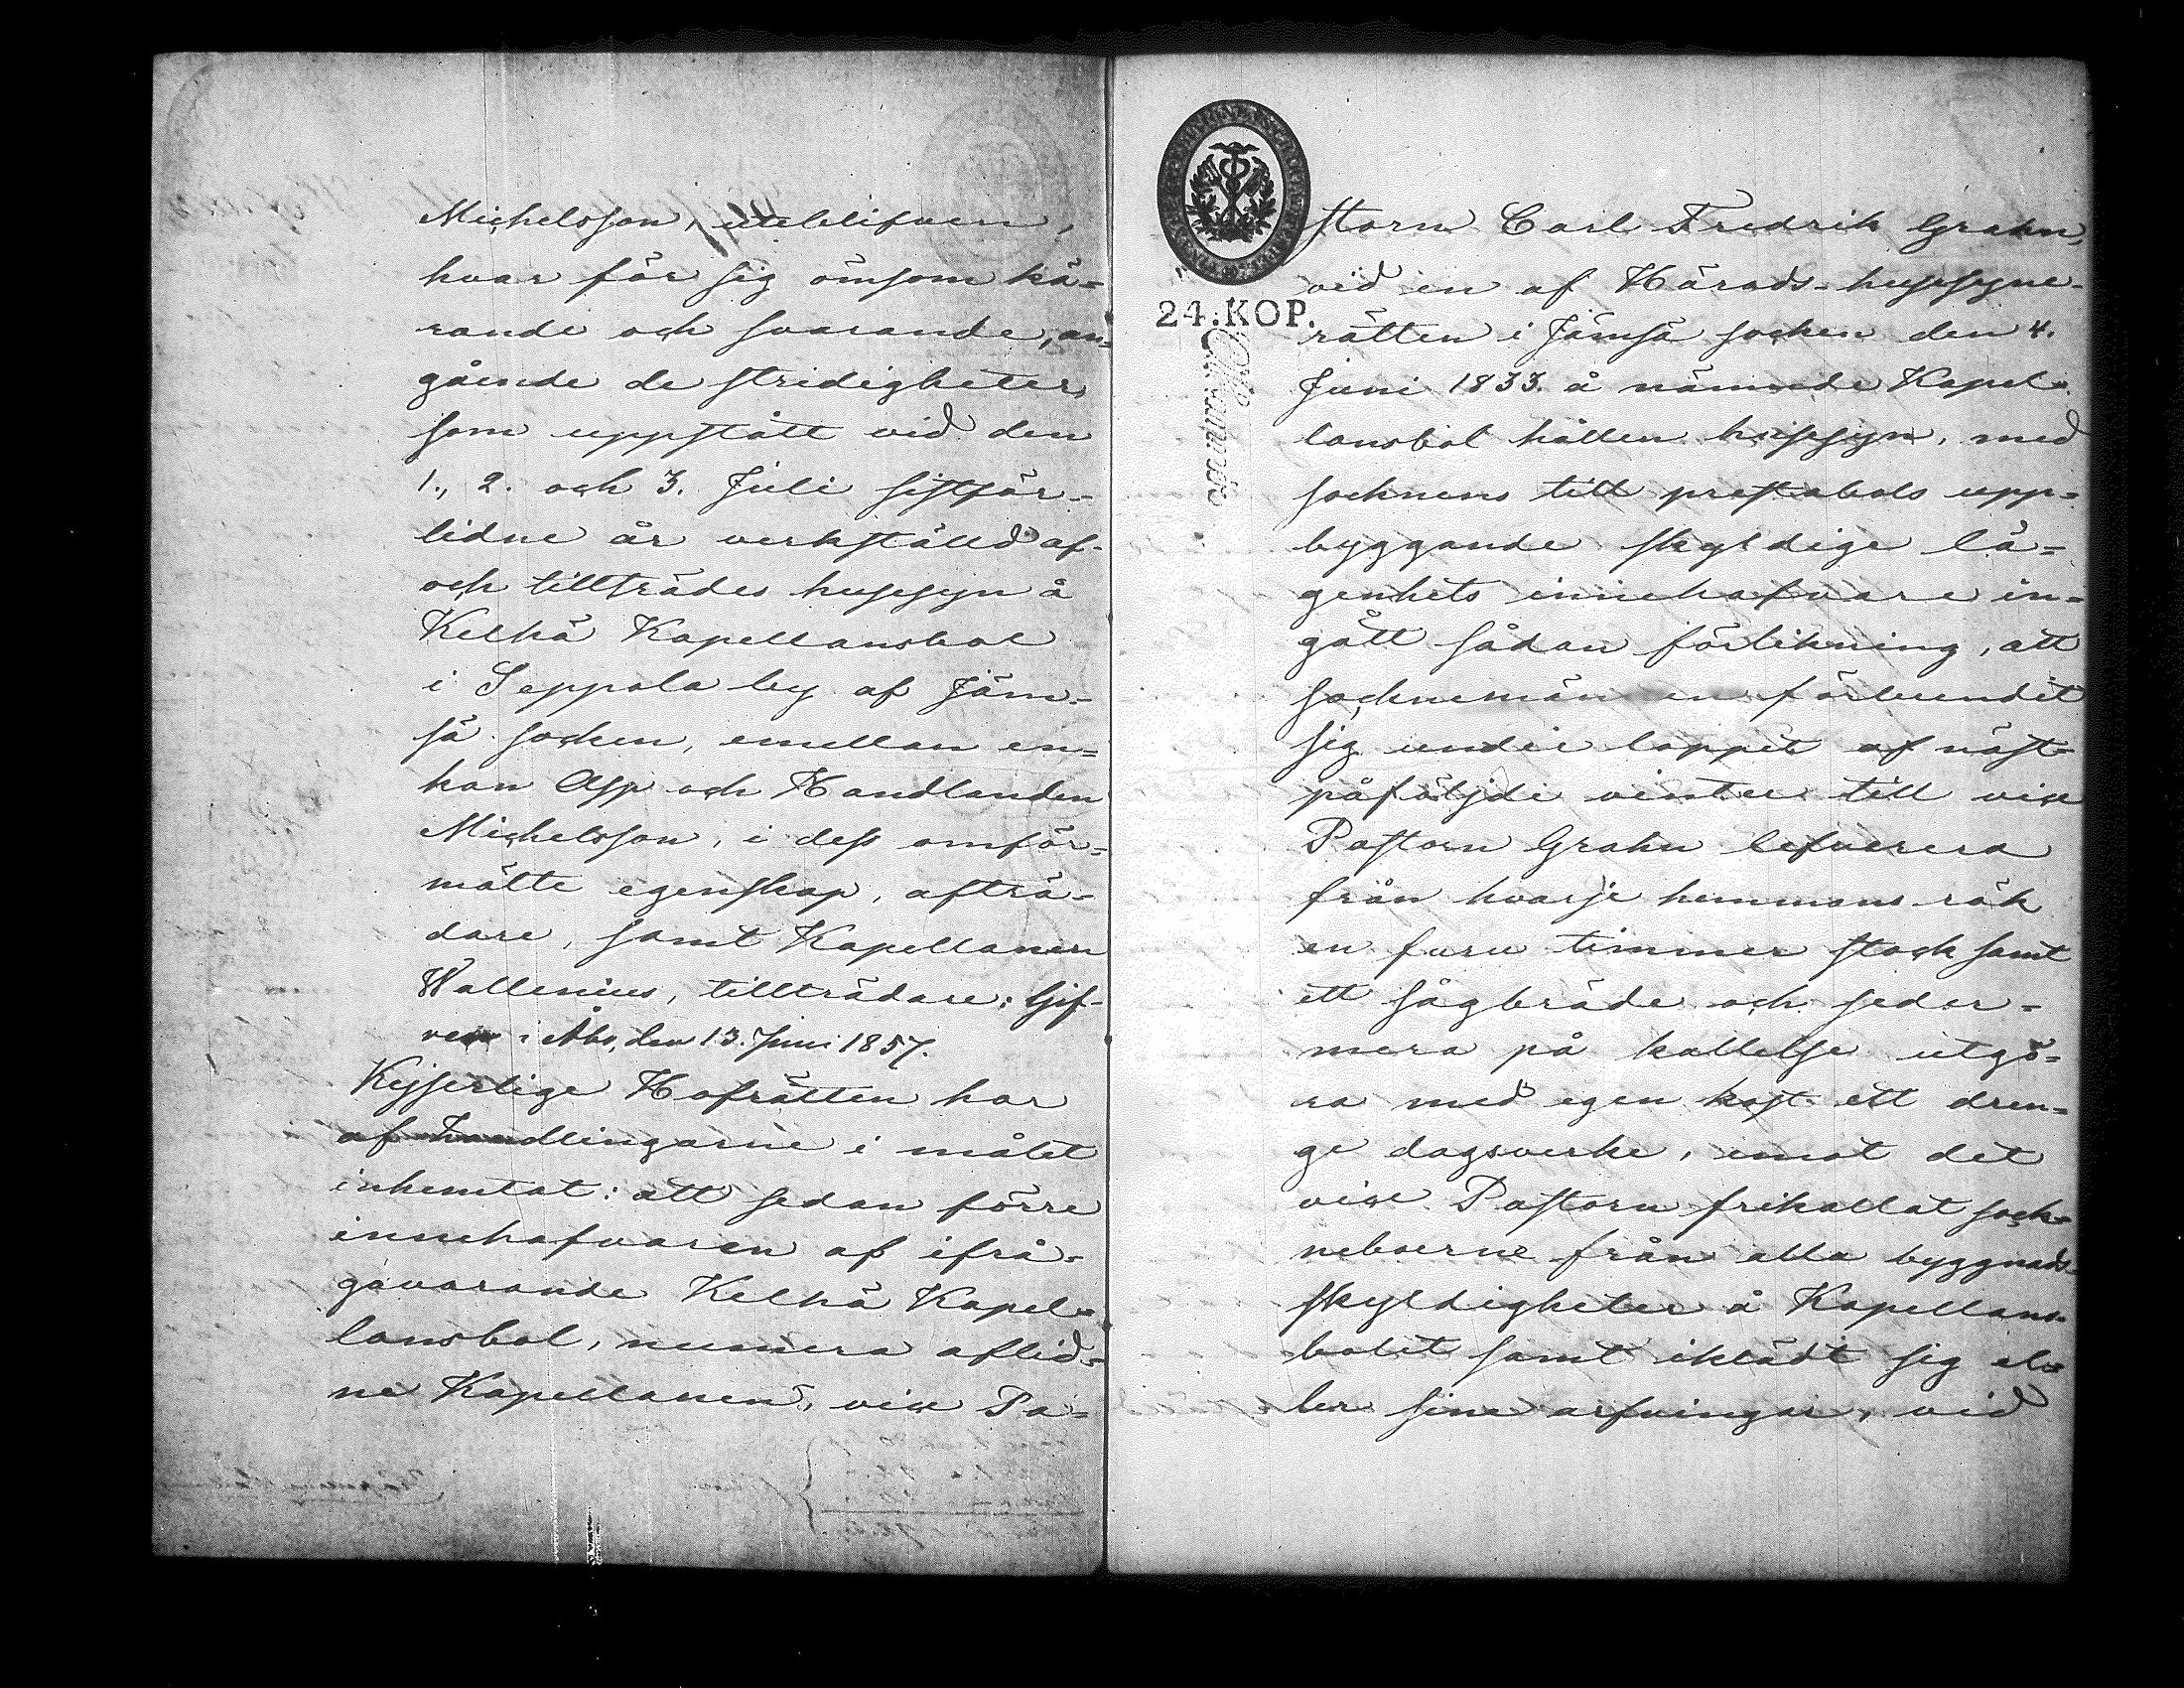 Michelsson, uteblifven,
hvar för sig ömsom kä-
rande och svarande, an-
gående de stridigheter,
som uppstått vid den
1., 2. och 3. Juli sistför-
lidne år verkställd af-
och tillträdes husesyn å
Kelhä Kapellansbol
i Seppola by af Jäm-
sä socken, emellan en-
kan Asp och Handlanden
Michelsson, i dess omför-
mälte egenskap, afträ-
dare, samt Kapellanen
Wallenius, tillträdare; Gif-
ven i Åbo, den 13. Juni 1857.
Kejserlige Hofrätten har
af handlingarne i målet
inhemtat: att sedan förre
innehafvaren af ifrå-
gavarande Kelhä Kapel-
lansbol, numera aflid-
ne Kapellanen, vice Pa-
24.KOP.
storn Carl Fredrik Grahn,
vid en af Härads-husesyne-
rätten i Jämsä socken den 4.
Juni 1833. å nämnde Kapel-
lansbol hållen husesyn, med
socknens till prestabols upp-
byggande skyldige lä-
genhets innehafvare in-
gått sådan förlikning, att
sockenemännen förbundit
sig under loppet af näst-
påföljde vinter till vice
Pastorn Grahn lefverera
från hvarje hemmans rök
en furu timmer stock samt
ett sågbräde och seder-
mera på kallelse utgö-
ra med egen kost ett dren-
ge dagsverke, emot det
vice Pastorn frikallat sock-
neboerne från alla byggnads-
skyldigheter å Kapellans-
bolet samt iklädt sig el-
ler sine arfvingar, vid